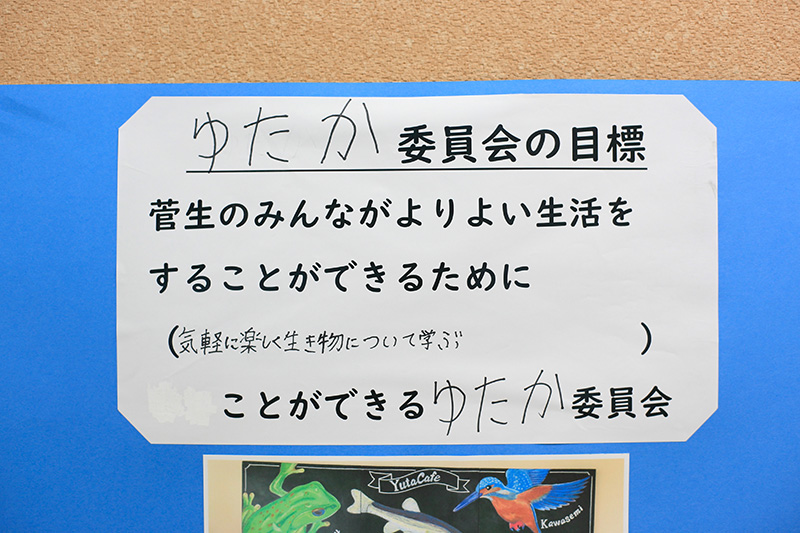 ゆたか 委員会の目標
菅生のみんながよりよい生活を
することができるために
(気軽に楽しく生き物について学ぶ )
ことができるゆたか委員会
YutaCafe
Kawasemi